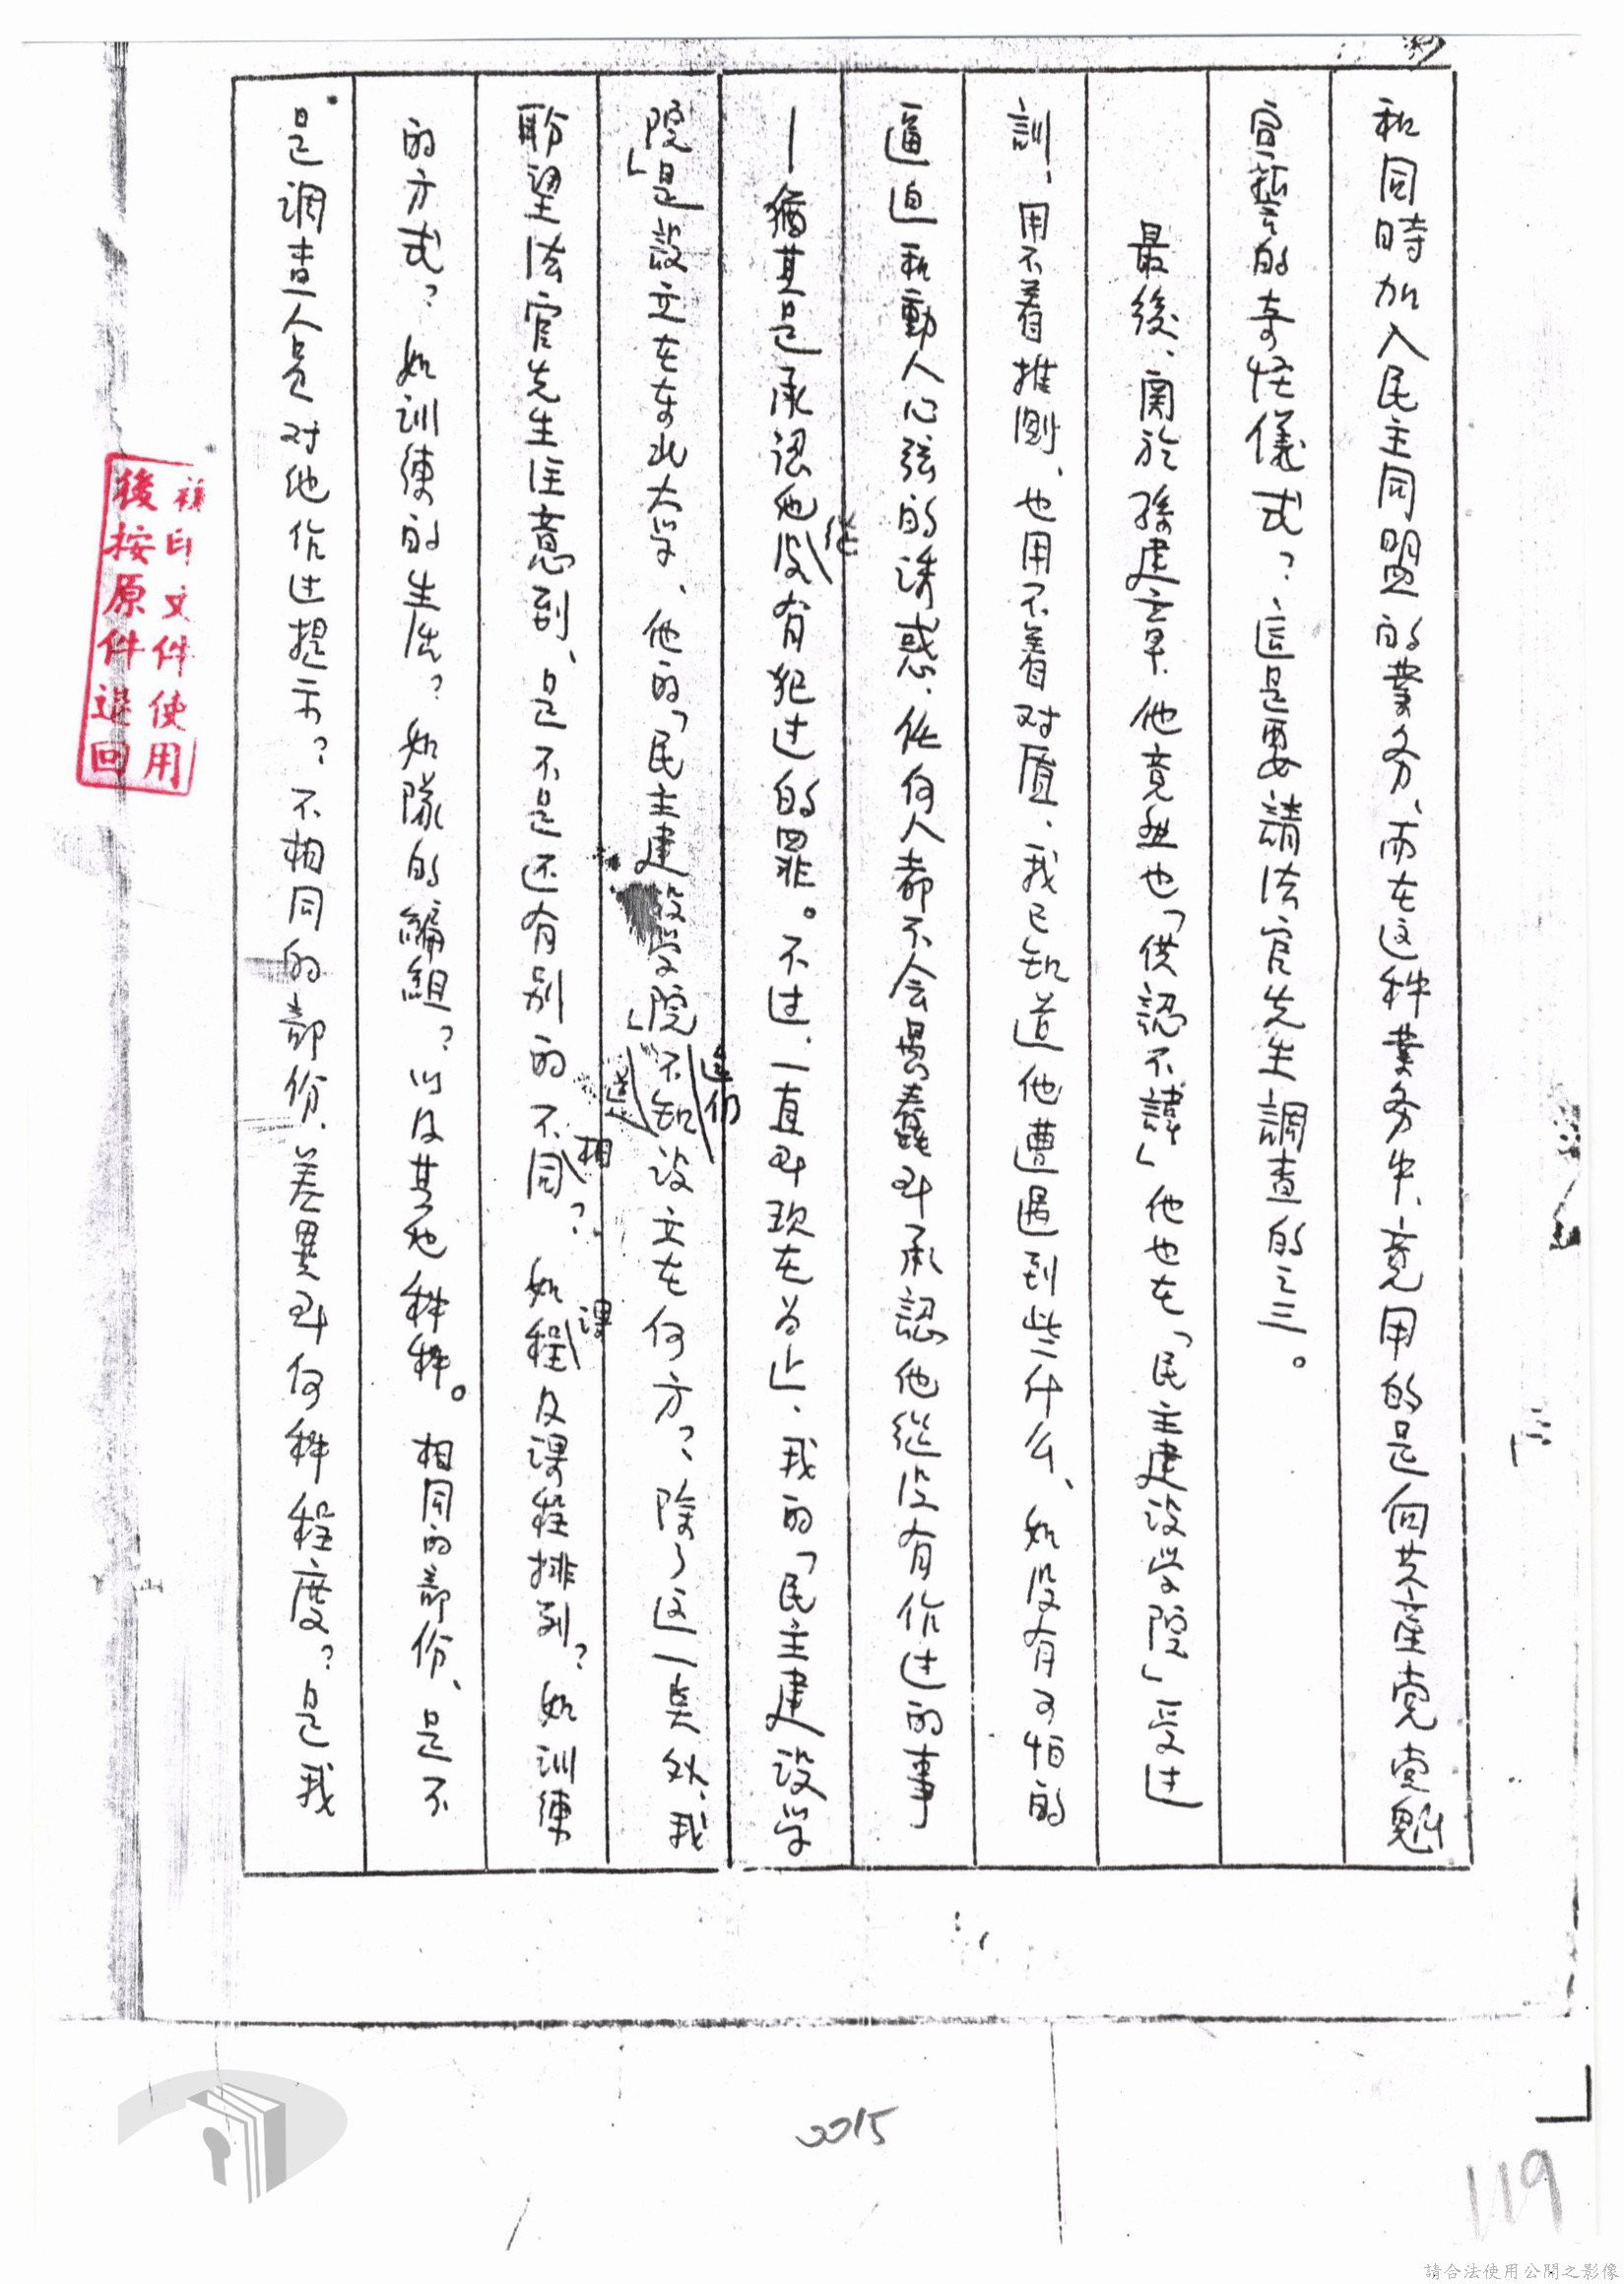 和同時加入民主同盟的業务、而在这种業务中、竟用的是向共產党党魁
宣誓的奇怪儀式？這是要請法官先生調查的之三。
最後、関於孫建章、他竟然也「供認不諱」他也在「民主建设学院」受过
訓、用不着推測、也用不着对质、我已知道他遭遇到些什么、如没有可怕的
逼迫和動人心弦的誘惑、任何人都不会愚蠢到承認他從没有作过的事
—猶其是承認他從没有犯过的罪。不过、一直到现在为止、我的「民主建设学
院」是設立在东北大学、他的「民主建设学院」不知道他们设立在何方？除了这一点外、我
盼望法官先生注意到、是不是还有别的不相同？如課程及课程排列？如訓練
的方式？如訓練的生活？如隊的編組？以及其他种种。相同的部份、是不
是調查人员对他作过提示？不相同的部份、差異到何种程度？是我
複印文件使用
後按原件退回
0015
119
請合法使用公開之影像